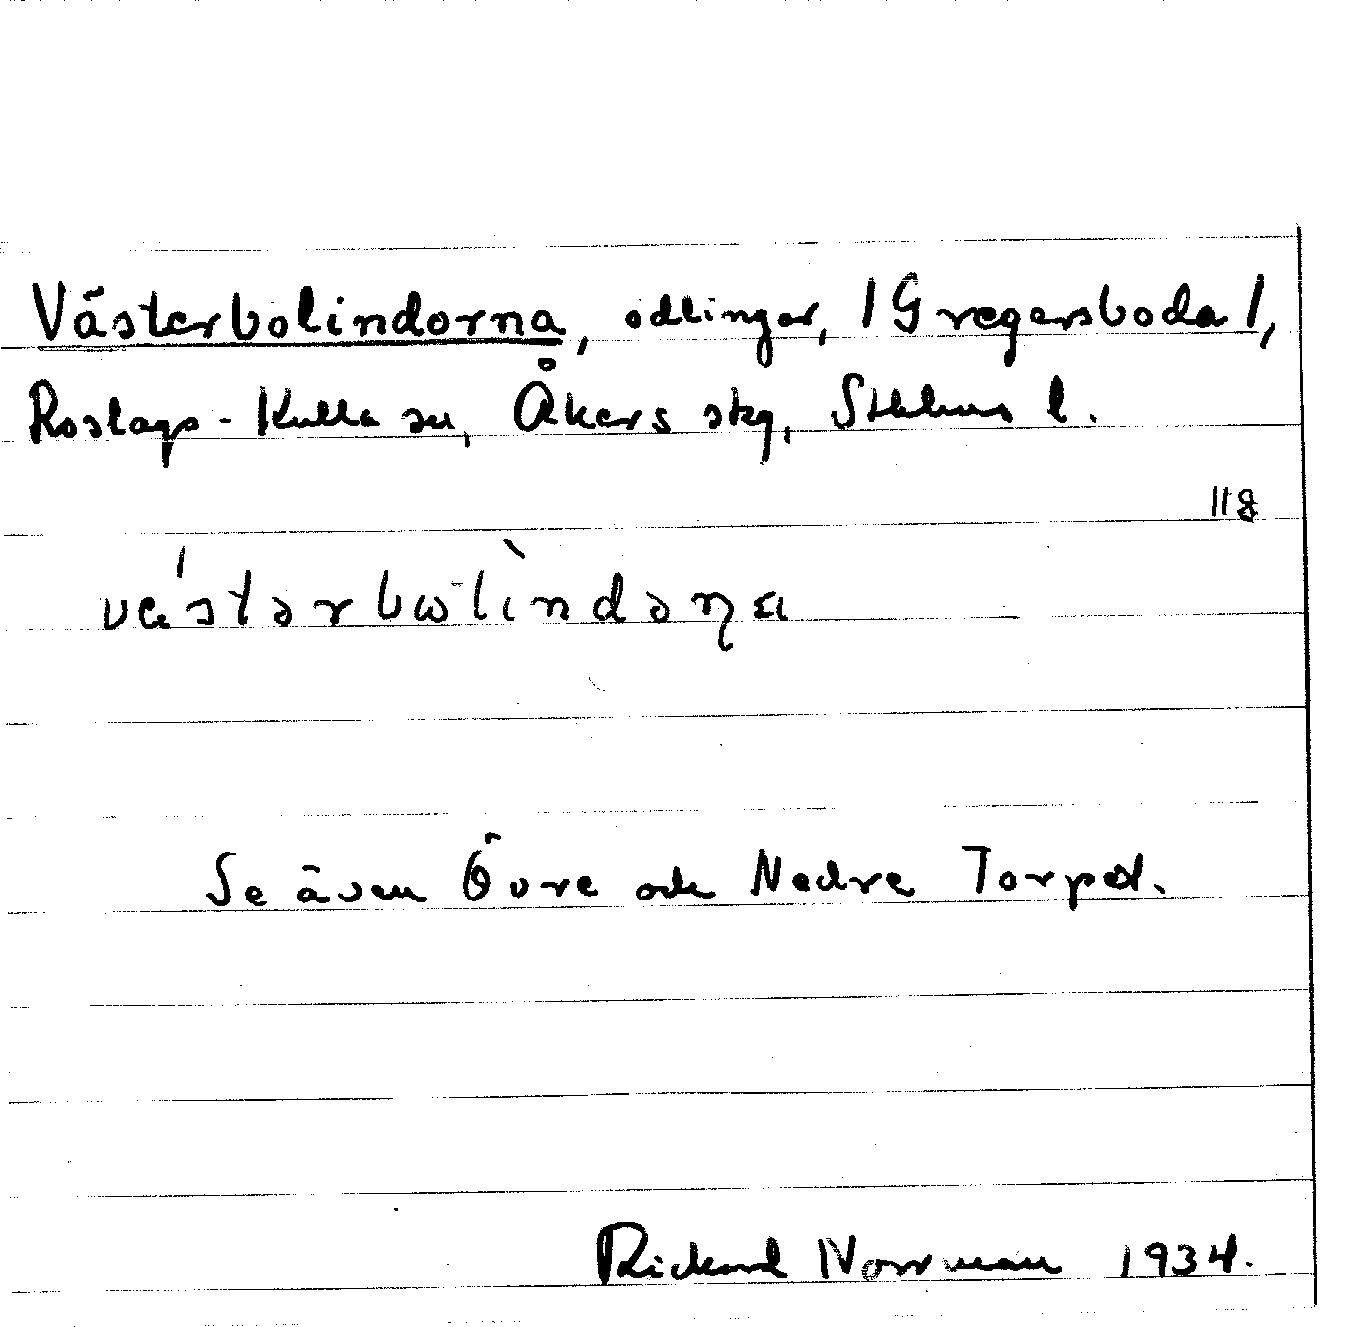 Västerbolindorna, odlingar, /Gregersboda/,
Roslags-Kulla sn, Åkers skg, Sthlms l.
118
væ´stərbωlìndəɳa
Se även Övre och Nedre Torpet.
Rickard Norrman 1934.